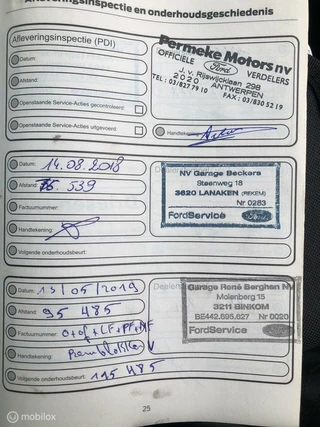 Afleveringsinspectie en onderhoudsgeschiedenis
Afleveringsinspectie (PDI)
Permeke Motors nv
OFFICIELE Ford VERDELERS
J. v. Rijswijcklaan 298
2020 ANTWERPEN
TEL: 03/827 79 10 FAX: 03/830 52 19
Datum:
Afstand:
Openstaande Service-Acties gecontroleerd:
Openstaande Service-Acties uitgevoerd:
Handtekening:
Datum: 14.08.2018
NV Garage Beckers
Steenweg 18
3620 LANAKEN (REKEM)
Nr 0283
FordService Ford
Afstand: 76.539
Factuurnummer:
Handtekening:
Volgende onderhoudsbeurt:
Datum: 13/05/2019
Garage René Berghen NV
Molenberg 15
3211 BINKOM
BE442.695.627 Nr 0020
FordService Ford
Afstand: 95 485
Factuurnummer: O+of+LF+PF+
Handtekening:
Volgende onderhoudsbeurt: 115 485
25
mobilox